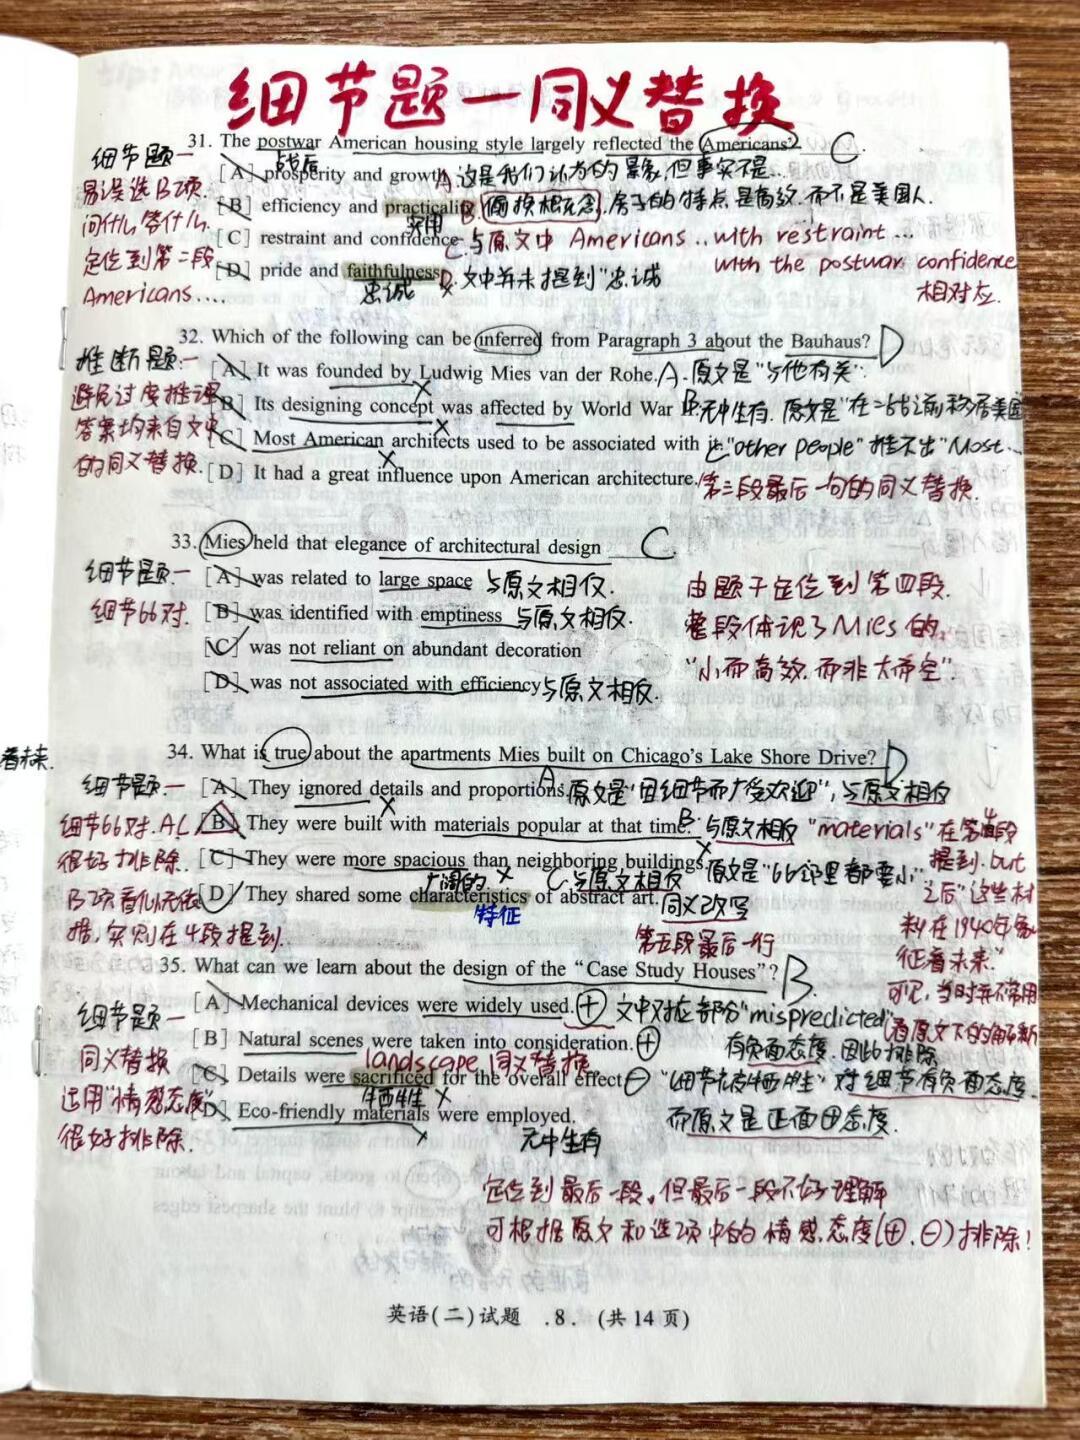 细节题一同义替换
31. The postwar American housing style largely reflected the Americans'. C
细节题一
易误选B项
问什么答什么
定位到第二段
Americans....
战后
[A] prosperity and growth A.这是我们认为的景象,但事实不是...
[B] efficiency and practicality B.偷换概念.房子的特点是高效.而不是美国人.
实用
[C] restraint and confidence C.与原文中 Americans .. with restraint ...
with the postwar confidence
相对应.
[D] pride and faithfulness D.文中并未提到"忠诚
忠诚
32. Which of the following can be inferred from Paragraph 3 about the Bauhaus? D
推断题:一
避免过度推理
答案均来自文中
的同义替换.
[A] It was founded by Ludwig Mies van der Rohe. A.原文是"与他有关".
[B] Its designing concept was affected by World War B.无中生有.原文是"在二战前移居美国
[C] Most American architects used to be associated with it "other people"推不出"Most...
[D] It had a great influence upon American architecture. 第三段最后一句的同义替换.
33. Mies held that elegance of architectural design C
细节题一
细节66对.
[A] was related to large space 与原文相反.
[B] was identified with emptiness 与原文相反.
[C] was not reliant on abundant decoration
[D] was not associated with efficiency 与原文相反.
由题干定位到第四段.
整段体现了Mies的
"小而高效.而非大而空".
34. What is true about the apartments Mies built on Chicago's Lake Shore Drive? D
细节题一
细节66对.
很好排除.
B项看似无依
推,实则在4段提到..
[A] They ignored details and proportions. A.原文是"因细节而广受欢迎",与原文相反
[B] They were built with materials popular at that time. B.与原文相反 "materials"在第4段
提到.but
之后"这些材
料在1940年象
征着未来"
可见,当时并不常用
[C] They were more spacious than neighboring buildings. C.与原文相反 原文是"66邻里都要小"
广阔的
[D] They shared some characteristics of abstract art. 同义改写
特征
第五段最后一行
35. What can we learn about the design of the "Case Study Houses"? B
细节题一
同义替换
运用"情感态度"
很好排除.
[A] Mechanical devices were widely used. ⊕ 文中对应部分"mispredicted"
有负面态度.因此排除
[B] Natural scenes were taken into consideration. ⊕
landscape 同义替换
[C] Details were sacrificed for the overall effect ⊖ "细节被牺牲"对细节有负面态度.
牺牲
而原文是正面⊕态度.
[D] Eco-friendly materials were employed.
无中生有
定位到最后一段,但最后一段不好理解
可根据原文和选项中的情感态度(⊕.⊖)排除!
英语(二)试题 . 8 . (共14页)